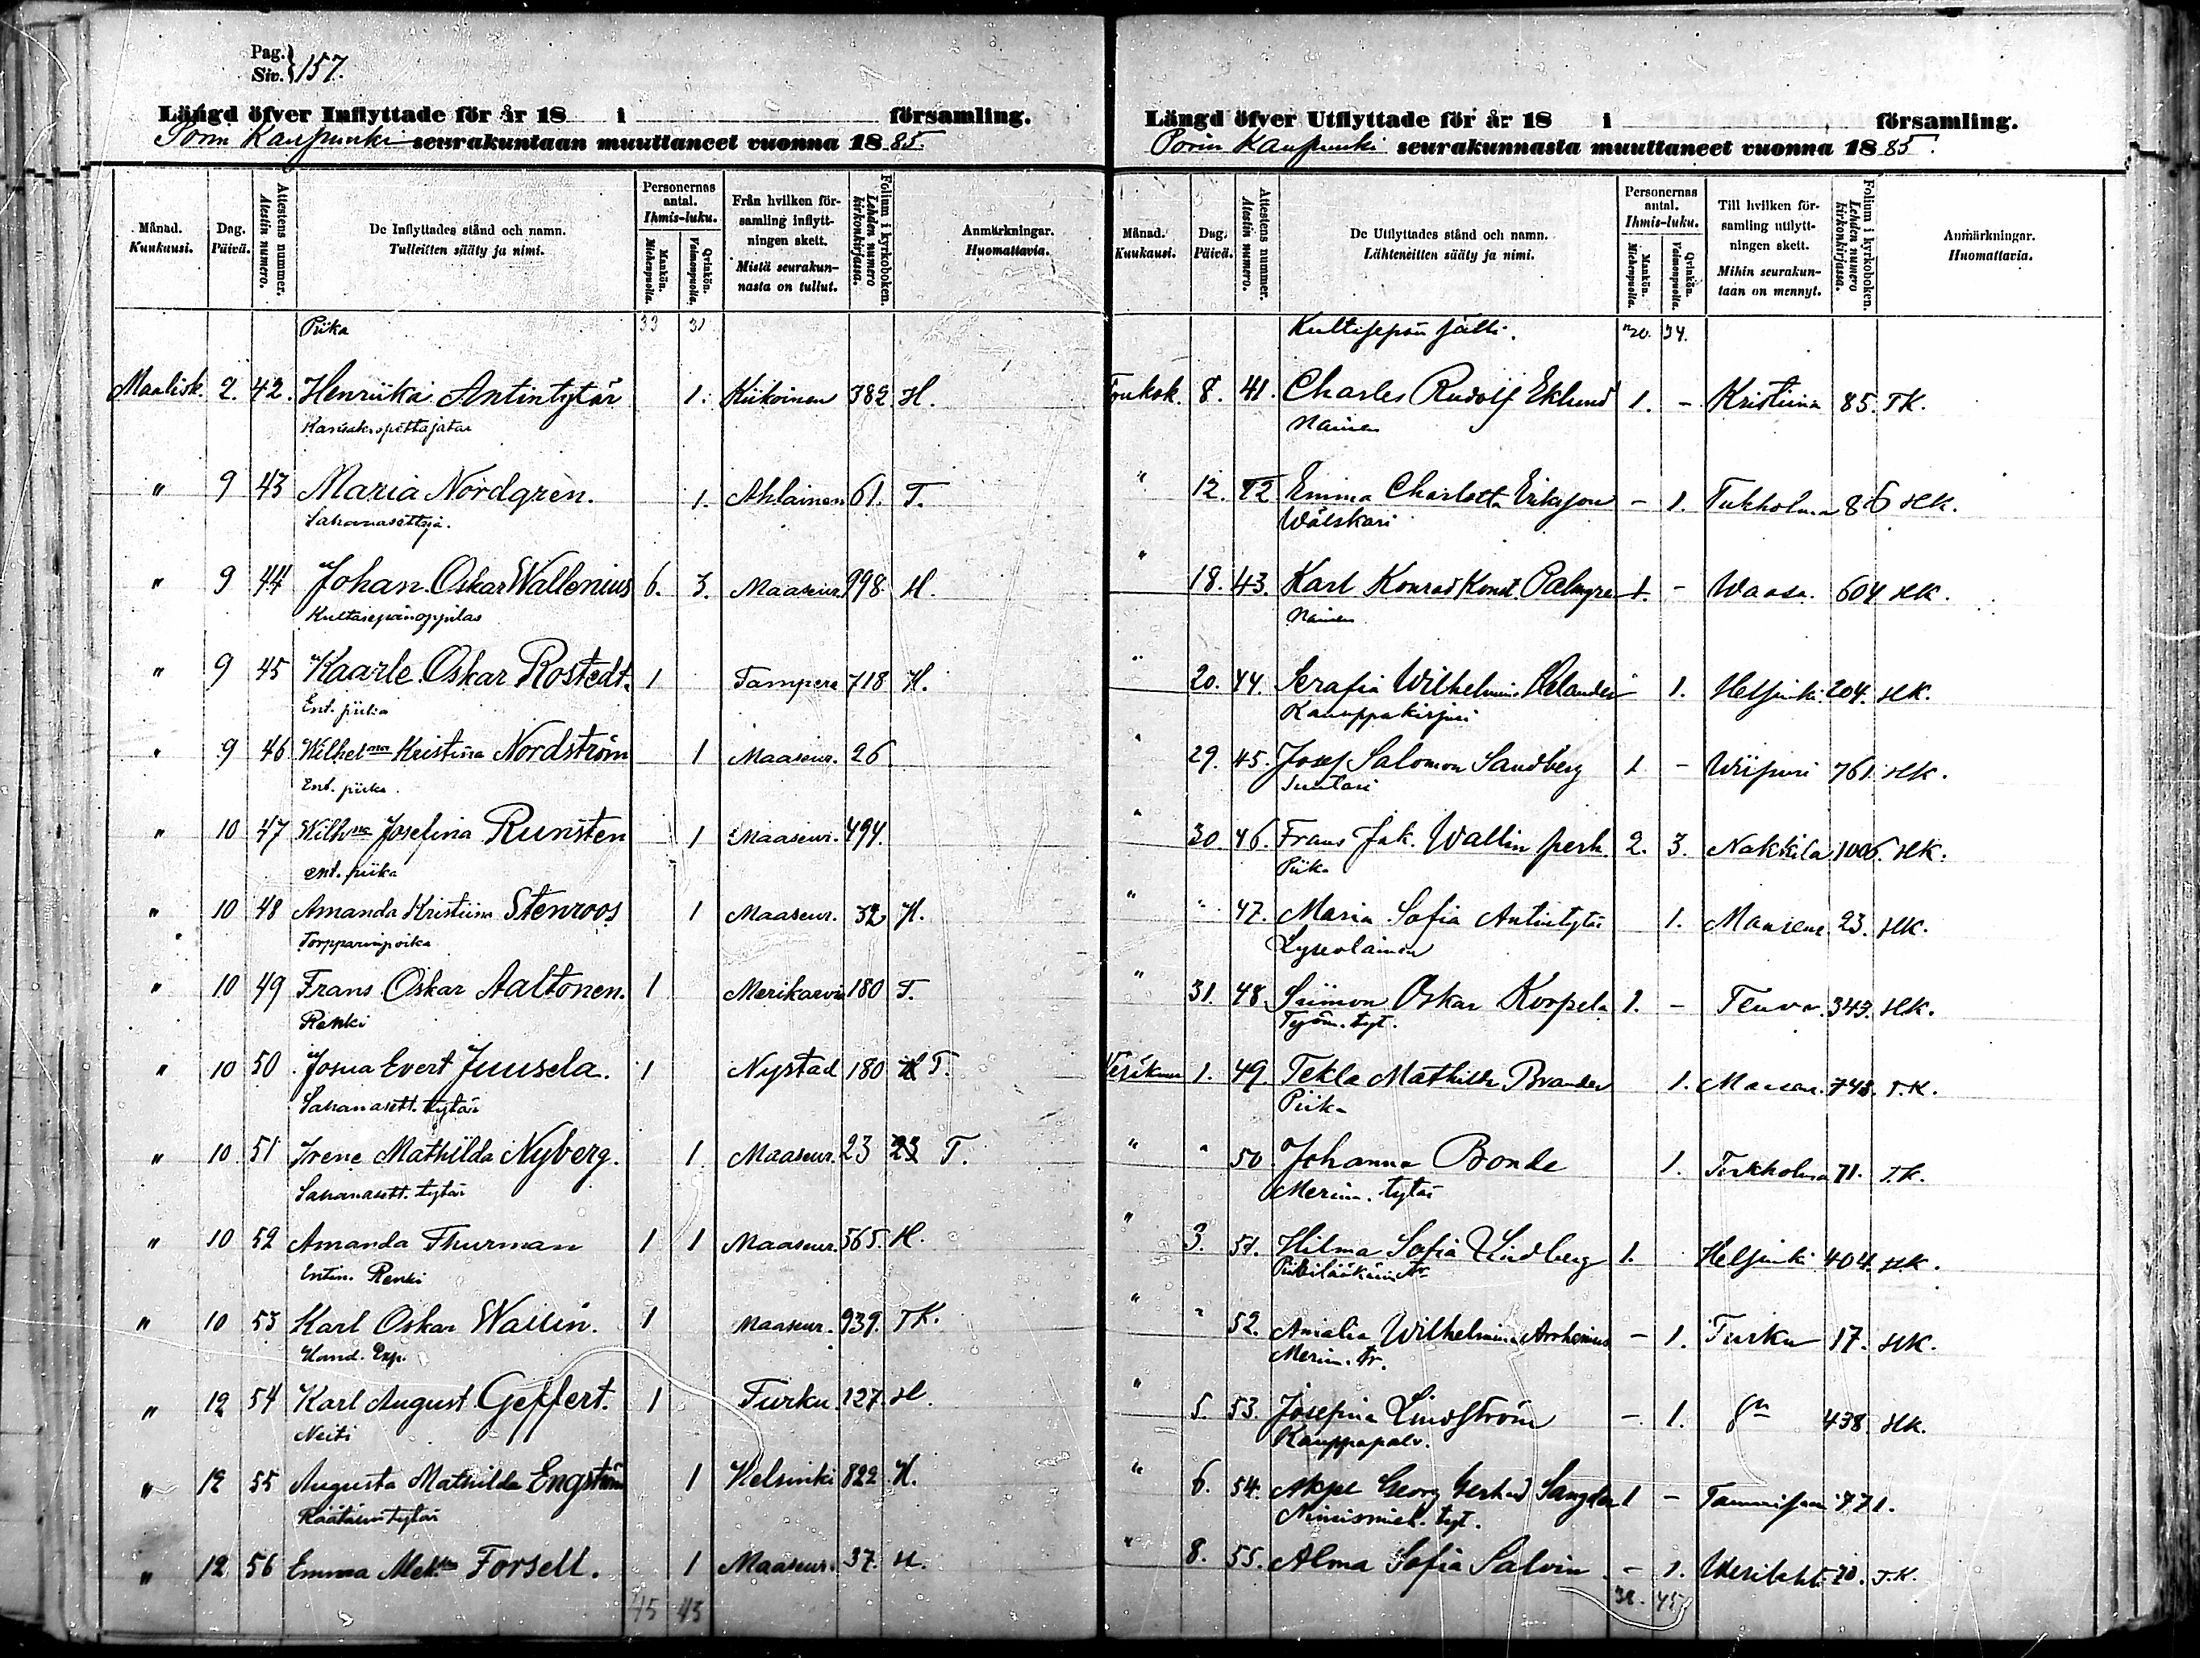 Pag. Siv. } 157.
Längd öfver Inflyttade för år 18 i församling.
Porin Kaupunki seurakuntaan muuttaneet vuonna 1885.
Månad. Kuukausi.
Dag. Päivä.
Attestens nummer. Atestin numero.
De Inflyttades stånd och namn. Tulleitten sääty ja nimi.
Personernas antal. Ihmis-luku.
Mankön. Miehenpuolia.
Qvinkön. Vaimonpuolia.
Från hvilken församling inflyttningen skett. Mistä seurakunnasta on tullut.
Folium i kyrkoboken. Lehden numero kirkonkirjassa.
Anmärkningar. Huomattavia.
Piika 33 31
Maalisk. 2. 42. Henriika Antintytär 1. Kiikoinen 382. H.
" 9 43 Maria Nordgren. 1. Ahlainen 61. T.
Sahanasettaja.
" 9 44 Johan Oskar Wallenius 6. 3. Maaseur. 998. H.
Kultasepänoppilas
" 9 45 Kaarle Oskar Rostedt. 1 Tampere 718 H.
Ent. piika
" 9 46 Wilhelma Kristina Nordström 1 Maaseur. 26
Ent. piika.
" 10 47 Wilhna Josefina Runsten 1 Maaseur. 494.
ent. piika
" 10 48 Amanda Kristiina Stenroos 1 Maaseur. 32 H.
Torpparinpoika
" 10 49 Frans Oskar Aaltonen. 1 Merikarvia 180 T.
Renki
" 10 50 Josua Evert Juusela. 1 Nystad 180 H T.
Sahanasett. tytär
" 10 51 Irene Mathilda Nyberg. 1 Maaseur. 23 23 T.
Sahanasett. tytär
" 10 52 Amanda Thurman 1 1 Maaseur. 565. H.
Entin. Renki
" 10 53 Karl Oskar Wallin. 1 Maaseur. 939. TK.
Hand. Exp.
" 12 54 Karl August Geffert. 1 Turku 127. H.
Neiti
" 12 55 Augusta Mathilda Engström 1 Helsinki 822. H.
Räätärin tytär
" 12 56 Emma Forsell. 1 Maaseur. 37. H.
45 43
Längd öfver Utflyttade för år 18 i församling.
Porin Kaupunki seurakunnasta muuttaneet vuonna 1885.
Månad. Kuukausi.
Dag. Päivä.
Attestens nummer. Atestin numero.
De Utflyttades stånd och namn. Lähteneitten sääty ja nimi.
Personernas antal. Ihmis-luku.
Mankön. Miehenpuolia.
Qvinkön. Vaimonpuolia.
Till hvilken församling utflyttningen skett. Mihin seurakuntaan on mennyt.
Folium i kyrkoboken. Lehden numero kirkonkirjassa.
Anmärkningar. Huomattavia.
Kultasepän sälli. 20. 34.
Toukok. 8. 41. Charles Rudolf Eklund 1. - Kristiina 85. TK.
Nainen
" 12. 42 Emma Charlotta Eriksson - 1. Tukholma 86 HK.
Wälskäri
" 18. 43. Karl Konrad Konst. Palmgren 1. - Waasa. 604 HK.
Nainen
" 20. 44. Serafia Wilhelmina Helander 1. Helsinki 204. HK.
Kauppakirjuri
" 29. 45. Josef Salomon Sandberg 1 - Wiipuri 761. HK.
Suutari
" 30. 46. Frans Jak. Wallin perh. 2. 3. Nakkila 1006. HK.
Piika
" " 47. Maria Sofia Antintytär 1. Maaseur. 23. HK.
Lyseolainen
" 31. 48. Siimon Oskar Korpela 1. - Teuva. 343. HK.
Työm. tyt.
Kesäkuu 1. 49. Tekla Mathilda Brander 1. Maaseur. 743. T.K.
Piika
" " 50 Johanna Bonde 1. Tukholma 71. T.K.
Merim. tytär
" 3. 51. Hilma Sofia Lindberg 1. Helsinki 404. HK.
Piirilääkärin tr
" " 52. Amalia Wilhelmina Arrhenius - 1. Turku 17. HK.
Merim. tr.
" 5. 53. Josefina Lindström - 1. 438. HK.
Kauppapalv.
" 6. 54. Georg 1 - Tammisaari 771.
Nimismieh. tyt.
" 8. 55. Alma Sofia Salvin - 1. Wesilahti 70. T.K.
32. 45